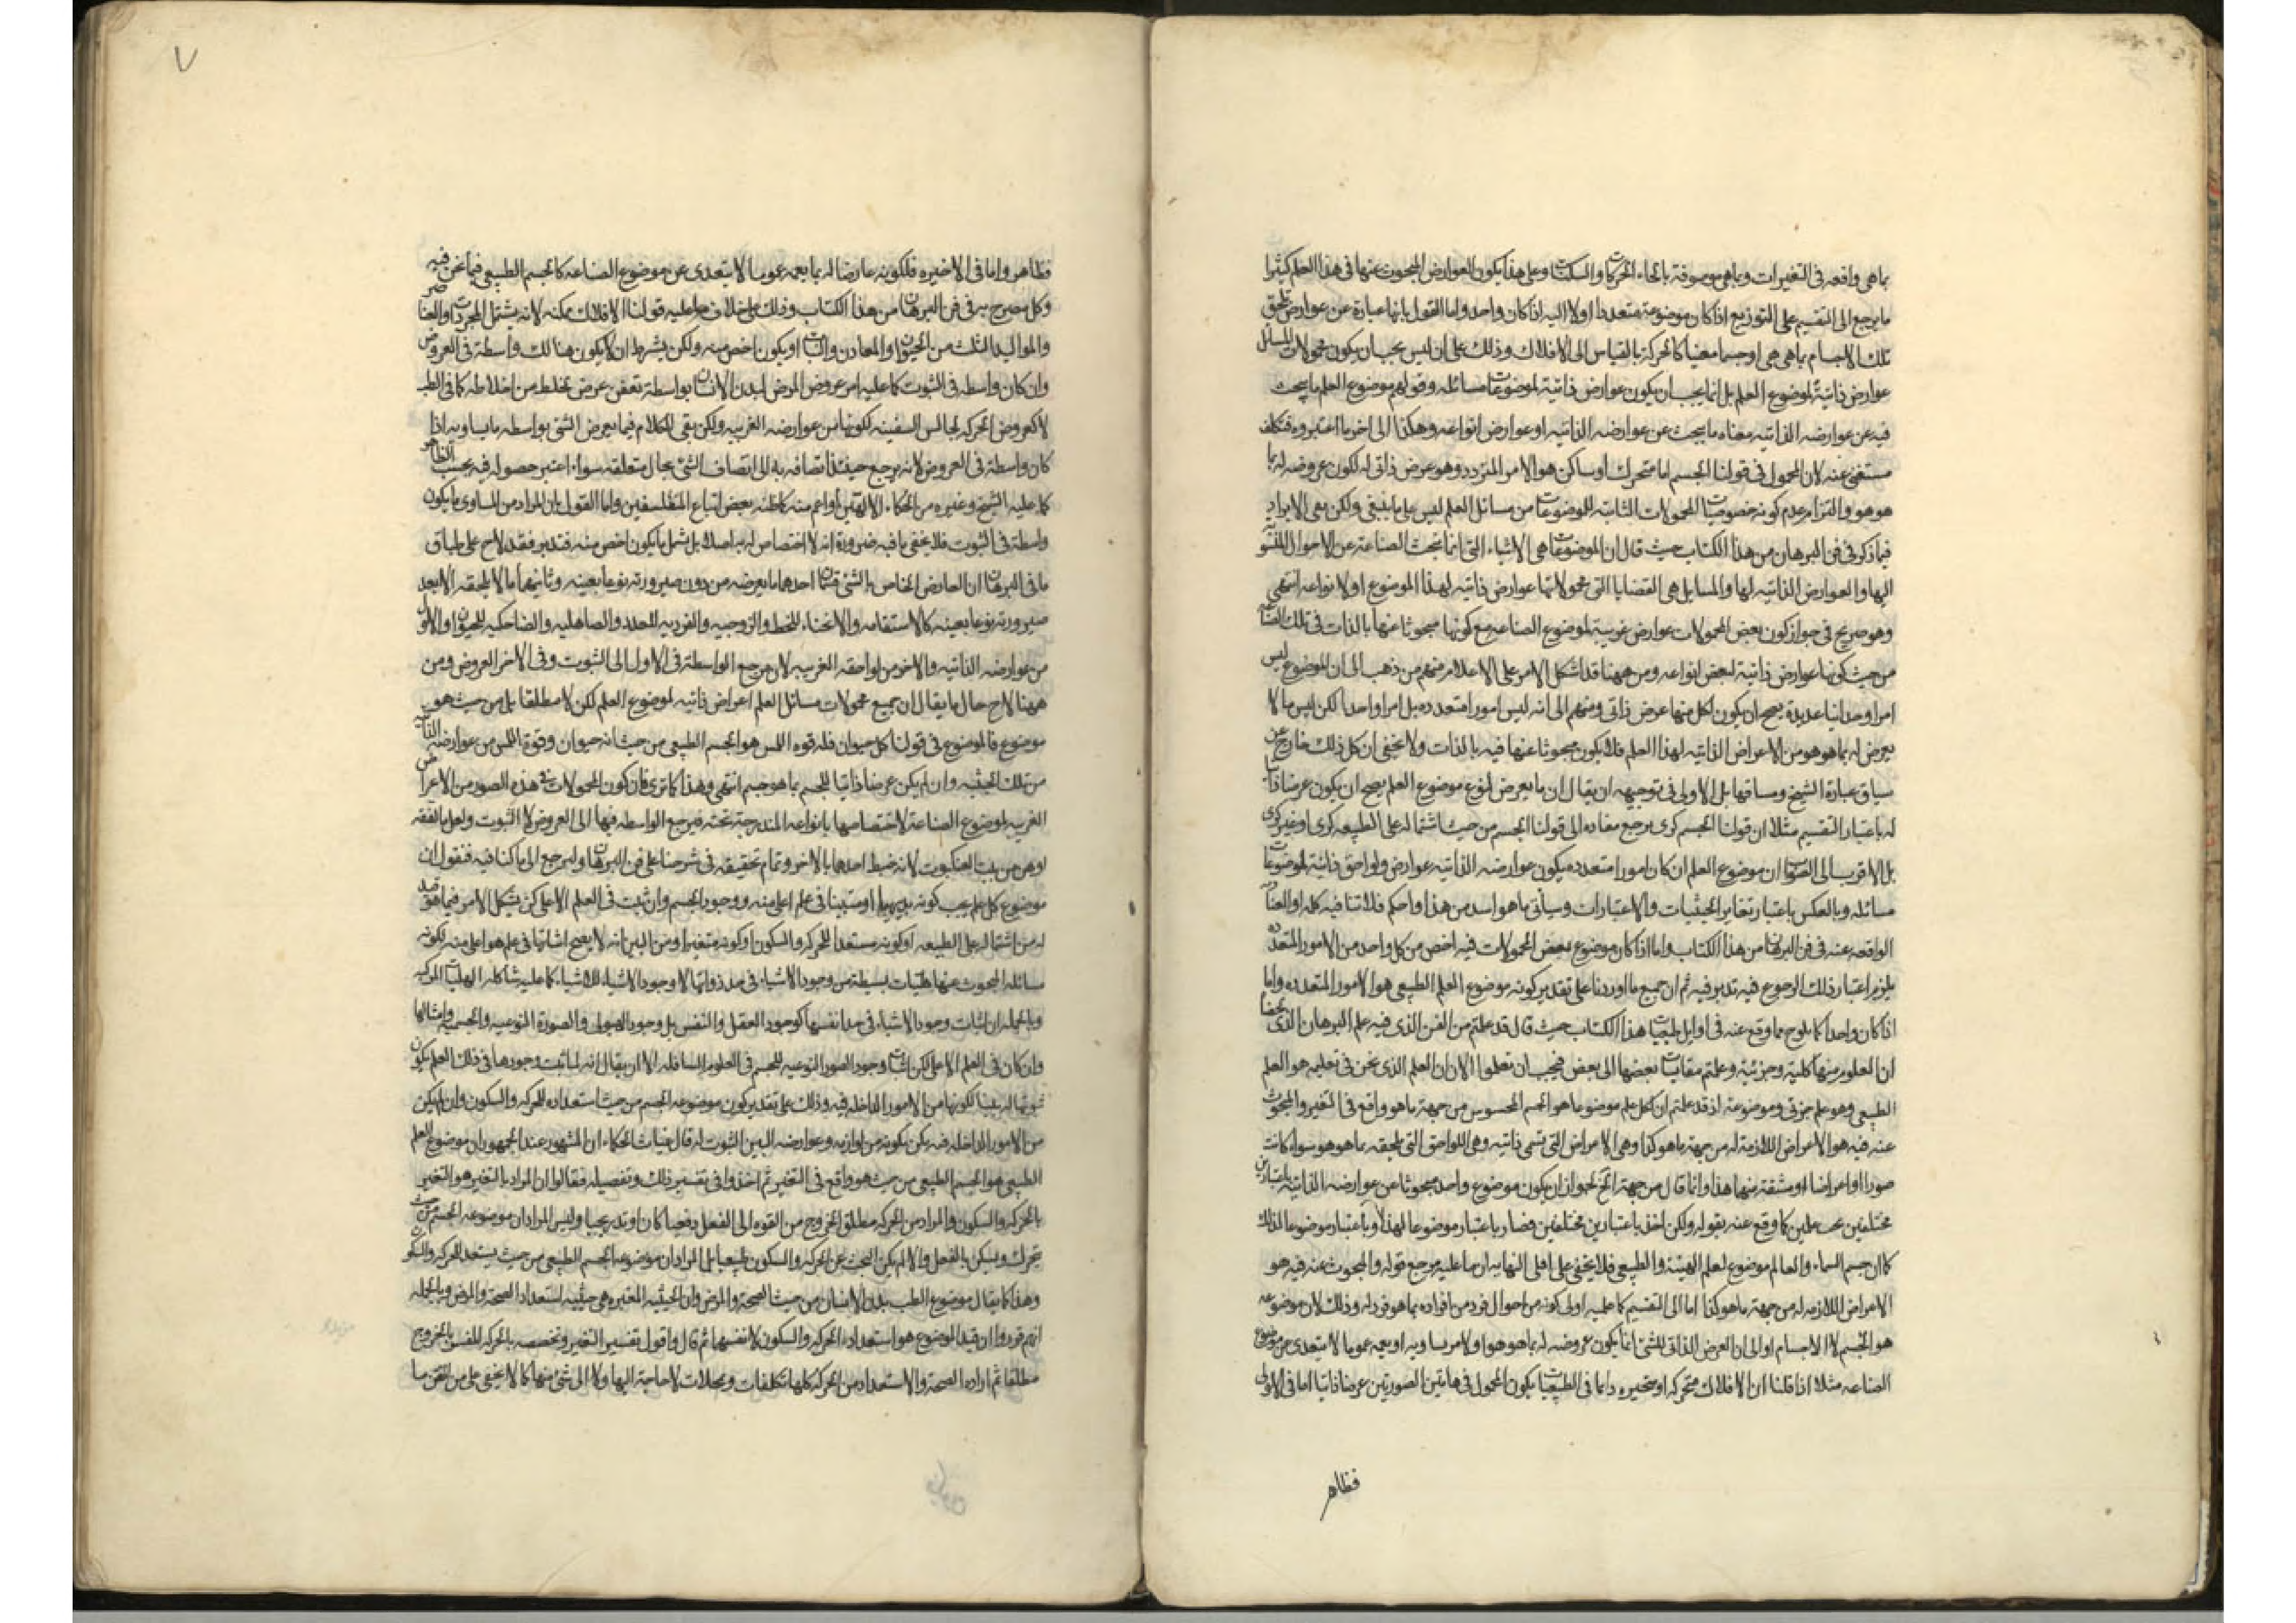 بما هى واقعه فى التغيرات وبما هى موصوفة بانحاء الحركات والسكنات وعلى هذا يكون العوارض المبحوث عنها فى هذا العلم كثيرا
ما يرجع الى التقسيم على التوزيع اذا كان موضوعة متعددا اولا اليه اذا كان واحد واما القول بانها عبارة عن عوارض تلحق
تلك الاجسام بما هى هى او جسما معينا كالحركة بالقياس الى الافلاك وذلك على ان ليس يجب ان يكون محمولات المسائل
عوارض ذاتية لموضوع العلم بل انما يجب ان يكون عوارض ذاتية لموضوعات مسائله وقولهم موضوع العلم ما يبحث
فيه عن عوارضه الذاتيه معناه ما يبحث عن عوارضه الذاتيه او عوارض انواعه وهكذا الى اخر ما اعتبروه فتكلف
مستغنى عنه لان المحمول فى قولنا الجسم اما متحرك او ساكن هو الامر المردد وهو عرض ذاتى له لكون عروضه له بما
هو هو والتزام عدم كونه خصوصيات المحمولات الثابته للموضوعات من مسائل العلم ليس على ما ينبغى ولكن بقى الايراد
فيما ذكر فى فن البرهان من هذا الكتاب حيث قال ان الموضوعات هى الاشياء التى انما تبحث الصناعة عن الاحوال المنسوبة
اليها والعوارض الذاتيه لها والمسايل هى القضايا التى محمولاتها عوارض ذاتيه لهذا الموضوع او لانواعه انتهى
وهو صريح فى جواز كون بعض المحمولات عوارض غريبة لموضوع الصناعه مع كونها مبحوثا عنها بالذات فى تلك الصناعه
من حيث كونها عوارض ذاتية لبعض انواعه ومن ههنا قد اشكل الامر على الاعلام فمنهم من ذهب الى ان الموضوع ليس
امرا وحدانيا عديدة يصح ان يكون لكل منها عرض ذاتى ومنهم الى انه ليس امورا متعدده بل امرا واحدا لكن ليس ما لا
يعرض له بما هو هو من الاعراض الذاتيه لهذا العلم فلا يكون مبحوثا عنها فيه بالذات ولا يخفى ان كل ذلك خارج عن
سياق عبارة الشيخ ومساقها بل الاولى فى توجيهه ان يقال ان ما يعرض لنوع موضوع العلم يصح ان يكون عرضا ذاتيا
له باعتبار التقسيم مثلا ان قولنا الجسم كرى يرجع مفاده الى قولنا الجسم من حيث اشتماله على الطبيعه كرى او غير كرى
بل الاقرب الى الصواب ان موضوع العلم ان كان امورا متعدده يكون عوارضه الذاتيه عوارض ولواحق ذاتية لموضوعات
مسائله وبالعكس باعتبار تغاير الحيثيات والاعتبارات وسيأتى ما هو اسد من هذا واحكم فلا تنافيه كلمه او العناديه
الواقعه عنه فى فن البرهان من هذا الكتاب واما اذا كان موضوع بعض المحمولات فيه اخص من كل واحد من الامور المتعدده
يلزم اعتبار ذلك الرجوع فيه تدبر فيه ثم ان جميع ما اوردنا على تقدير كونه موضوع العلم الطبيعى هو الامور المتعدده واما
اذا كان واحدا كما يلوح مما وقع عنه فى اوايل طبيعيات هذا الكتاب حيث قال قد علمتم من الفن الذى فيه علم البرهان الذى لخصنا
ان العلوم منها كلية وجزئية وعلمتم مقايسات بعضها الى بعض فيجب ان تعلموا الان ان العلم الذى نحن فى تعليمه هو العلم
الطبيعى وهو علم جزئى وموضوعه اذ قد علمتم ان لكل علم موضوعا هو الجسم المحسوس من جهة ما هو واقع فى التغير والمبحوث
عنه فيه هو الاعراض اللازمة له من جهة ما هو كذا وهى الاعراض التى تسمى ذاتيه وهى اللواحق التى تلحقه بما هو هو سواء كانت
صورا او اعراضا او مشتقة منها هذا وانما قال من جهة الخ لجواز ان يكون موضوع واحد مبحوثا عن عوارضه الذاتيه باعتبارين
مختلفين بحسب علمين كما وقع عنه بقوله ولكن اخذ باعتبارين مختلفين فصار باعتبار موضوعا لهذا وباعتبار موضوعا لذلك
كما ان جسم السماء والعالم موضوع لعلم الهيئة والطبيعى فلا يخفى على اهل النهايه ان ما عليه مرجع قوله والمبحوث عنه فيه هو
الاعراض اللازمه له من جهة ما هو كذا اما الى التقسيم كما عليه اولى كونه من احوال فرد من افراده بما هو فرد له وذلك لان موضوعه
هو الجسم لا الاجسام او الى ان العرض الذاتى للشئ انما يكون عروضه له بما هو هو او لامر يساويه او يعمه عموما لا يتعدى عن موضوع
الصناعه مثلا اذا قلنا ان الافلاك متحركه او متحيزه دايما فى الطبيعيات يكون المحمول فى هاتين الصورتين عرضا ذاتيا اما فى الاولى
فظاهر
٧
فظاهر واما فى الاخيره فلكونه عارضا له بما يعمه عموما لا يتعدى عن موضوع الصناعه كالجسم الطبيعى فيما نحن فيه
وكل مصرح به فى فن البرهان من هذا الكتاب وذلك على خلاف ما عليه قولنا الافلاك ممكنه لانه يشتمل المجردات والعناصر
والمواليد الثلث من الحيوان والمعادن والنبات او يكون اخص منه ولكن بشرط ان لا يكون هنالك واسطة فى العروض
وان كان واسطه فى الثبوت كما عليه امر عروض المرض لبدن الانسان بواسطة تعفن عرض لخلط من اخلاطه كما فى الطب
لا كعروض الحركه لجالس السفينه لكونها من عوارضه الغريبه ولكن بقى الكلام فيما يعرض الشئ بواسطه ما يساويه اذا
كان واسطة فى العروض لانه يرجع حينئذ اتصافه به الى اتصاف الشئ بحال متعلقه سواء اعتبر حصوله فيه بحسب الظاهر
كما عليه الشيخ وغيره من الحكماء الالهيين او اعم منه كما ظنه بعض اتباع المتفلسفين واما القول بان المراد من المساوى ما يكون
واسطة فى الثبوت فلا يخفى ما فيه ضرورة انه لا اختصاص له به اصلا بل يشمل ما يكون اخص منه فتدبر فقد لاح على طباق
ما فى البرهان ان العارض الخاص بالشئ قسمان احدهما ما يعرضه من دون صيرورته نوعا بعينه وثانيهما ما لا يلحقه الا بعد
صيرورته نوعا بعينه كالاستقامه والانحناء للخط والزوجيه والفرديه للعدد والصاهليه والضاحكيه للحيوان والاول
من عوارضه الذاتيه والاخر من لواحقه الغريبه لان مرجع الواسطة فى الاول الى الثبوت وفى الاخر العروض ومن
ههنا لاح حال ما يقال ان جميع محمولات مسائل العلم اعراض ذاتيه لموضوع العلم لكن لا مطلقا بل من حيث هو
موضوع فالموضوع فى قولنا كل حيوان فله قوه اللمس هو الجسم الطبيعى من حيث انه حيوان وقوة اللمس من عوارضه الذاتيه
من تلك الحيثيه وان لم يكن عرضا ذاتيا للجسم بما هو جسم انتهى وهذا كما ترى فان كون المحمولات فى هذه الصور من الاعراض
الغريبه لموضوع الصناعة لاختصاصها بانواعه المندرجة تحته فيرجع الواسطه فيها الى العروض لا الثبوت ولعل ما لفقه
اوهن من بيت العنكبوت لانه خبط احدهما بالاخر وتمام تحقيقه فى شرحنا على فن البرهان وليرجع الى ما كنا فيه فنقول ان
موضوع كل علم يجب كونه بديهيا او مبينا فى علم اعلى منه ووجود الجسم وان ثبت فى العلم الاعلى لكن يشكل الامر فيما هو قيد
له من اشتماله على الطبيعه او كونه مستعدا للحركه والسكون او كونه متغيرا ومن البين انه لا يصح اثباتها فى علم هو اعلى منه لكونه
مسائله المبحوث عنها هليات بسيطة من وجود الاشياء فى حد ذواتها لا وجود الاشياء للاشياء كما عليه شاكله الهليات المركبه
وبالجمله ان اثبات وجود الاشياء فى حد انفسها كوجود العقل والنفس بل وجود الهيولى والصورة النوعيه والجسميه وامثالها
وان كان فى العلم الاعلى لكن اثبات وجود الصور النوعيه للجسم فى العلوم السافله الا ان يقال انه لما ثبت وجودها فى ذلك العلم يكون
ثبوتها له بينا لكونها من الامور الداخله فيه وذلك على تقدير كون موضوعه الجسم من حيث استعداده للحركه والسكون وان لم يكن
من الامور الداخله فيه يكن بكونه من لوازمه وعوارضه البين الثبوت له قال غياث الحكماء ان المشهور عند الجمهور ان موضوع العلم
الطبيعى هو الجسم الطبيعى من حيث هو واقع فى التغير ثم اخذوا فى تفسير ذلك وتفصيله فقالوا ان المراد بالتغير هو التغير
بالحركه والسكون والمراد من الحركه مطلق الخروج من القوه الى الفعل دفعيا كان او تدريجيا وليس المراد ان موضوعه الجسم من حيث
يتحرك ويسكن بالفعل والا لم يكن البحث عن الحركه والسكون طبيعيا بل المراد ان موضوعه الجسم الطبيعى من حيث يستعد للحركه والسكون
وهذا كما يقال موضوع الطب بدن الانسان من حيث الصحة والمرض وان الحيثيه المعتبره هى حيثيه استعداد الصحة والمرض وبالجمله
انهم قرروا ان قيد الموضوع هو استعداد الحركه والسكون لا نفسهما ثم قال واقول تفسير التغير وتخصصه بالحركه المفسر بالخروج
مطلقا ثم اراده الصحة والاستعداد من الحركه كلها تكلفات وتمحلات لا حاجة اليها ولا الى شئ منها كما لا يخفى على من اتقن ما